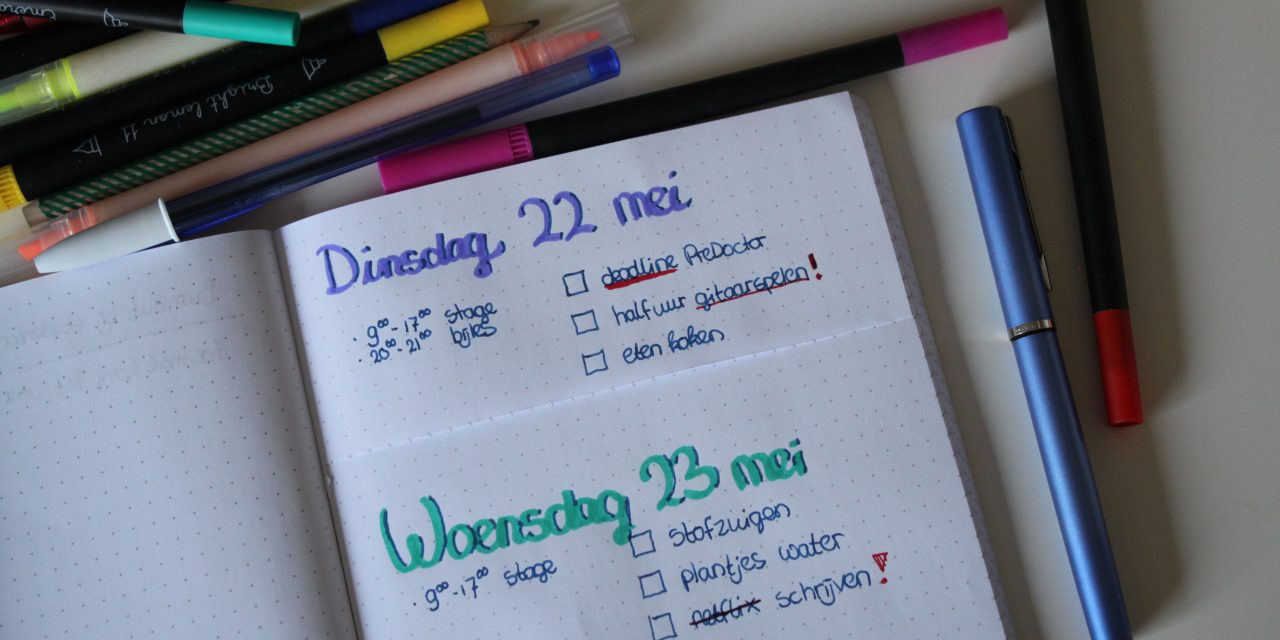 Bright lemon 11
Dinsdag 22 mei
· 9⁰⁰-17⁰⁰ stage
· 20⁰⁰-21⁰⁰ bijles
☐ deadline PreDoctor
☐ half uur gitaarspelen!
☐ eten koken
Woensdag 23 mei
· 9⁰⁰-17⁰⁰ stage
☐ stofzuigen
☐ plantjes water
☐ netflix schrijven!